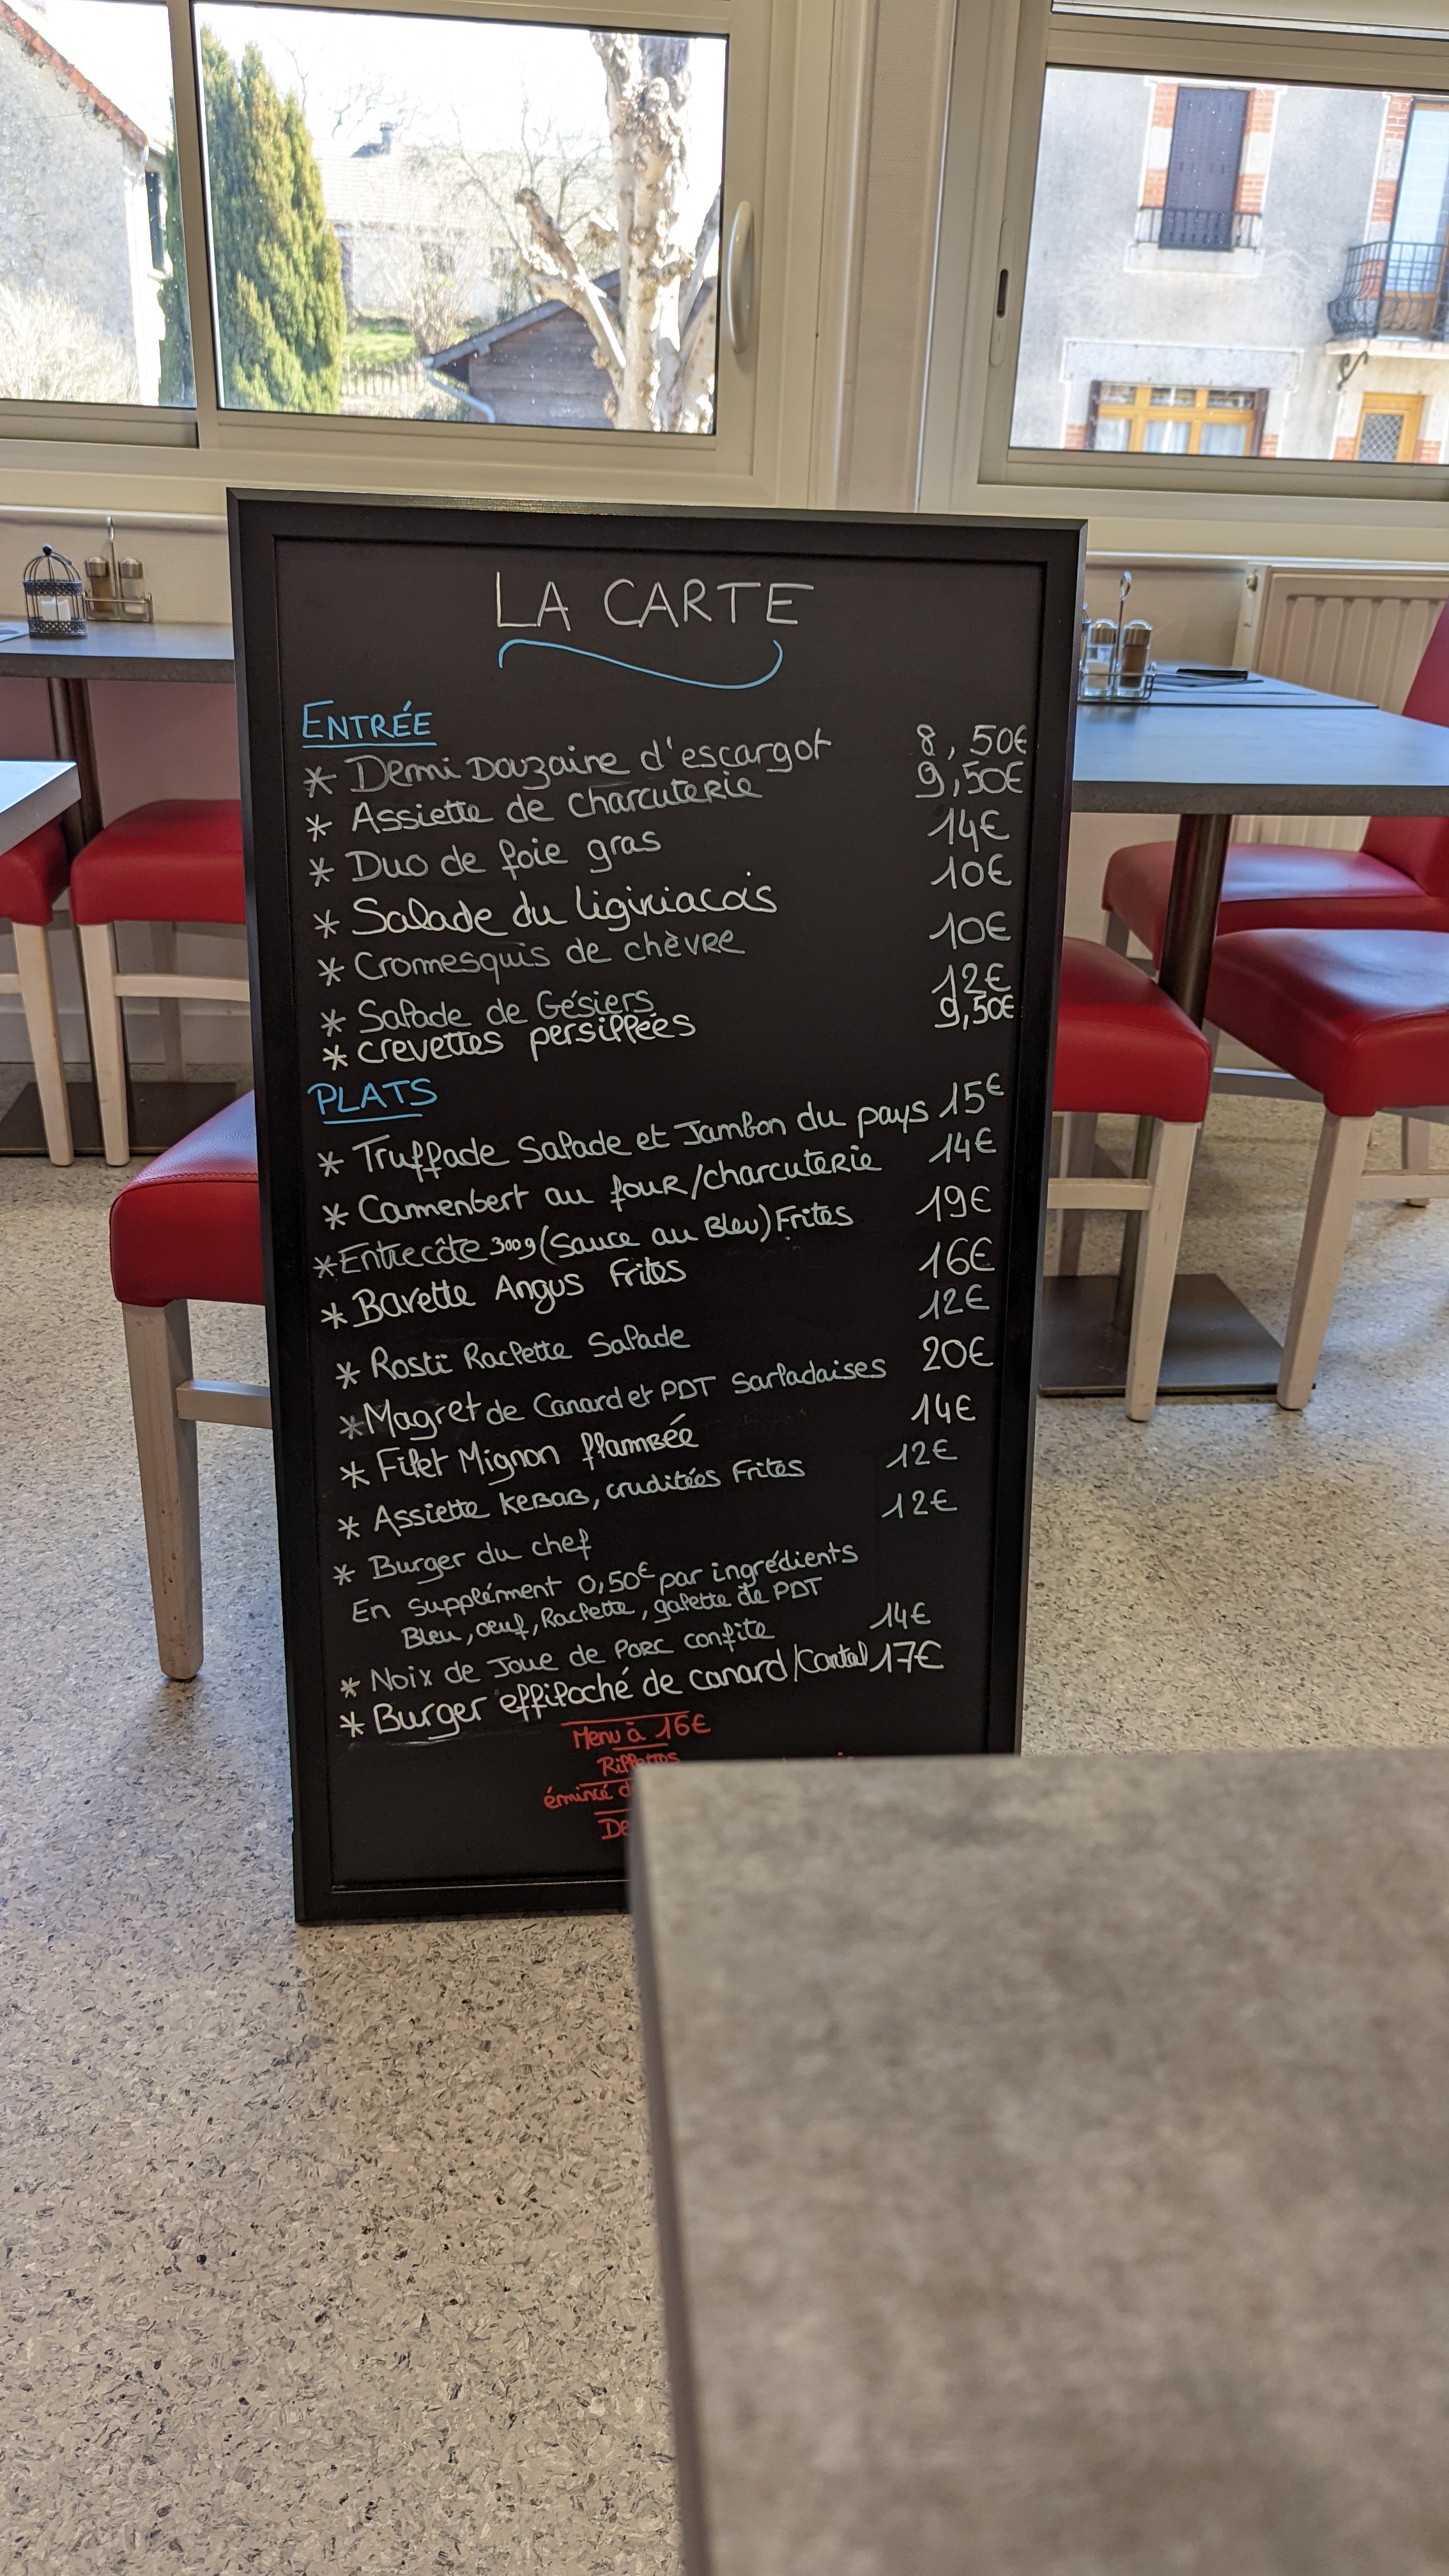 LA CARTE
ENTRÉE
* Demi Douzaine d'escargot 8,50€
* Assiette de charcuterie 9,50€
* Duo de foie gras 14€
* Salade du ligniacois 10€
* Cromesquis de chèvre 10€
* Salade de Gésiers 12€
* crevettes persillées 9,50€
PLATS
* Truffade Salade et Jambon du pays 15€
* Camenbert au four/charcuterie 14€
* Entrecôte 300g (Sauce au Bleu) Frites 19€
* Bavette Angus Frites 16€
* Rosti Raclette Salade 12€
* Magret de Canard et PDT Sarladaises 20€
* Filet Mignon flambée 14€
* Assiette KEBAB, cruditées Frites 12€
* Burger du chef 12€
En supplément 0,50€ par ingrédients
Bleu, oeuf, Raclette, galette de PDT
* Noix de Joue de Porc confite 14€
* Burger effiloché de canard/Cantal 17€
Menu à 16€
émincé